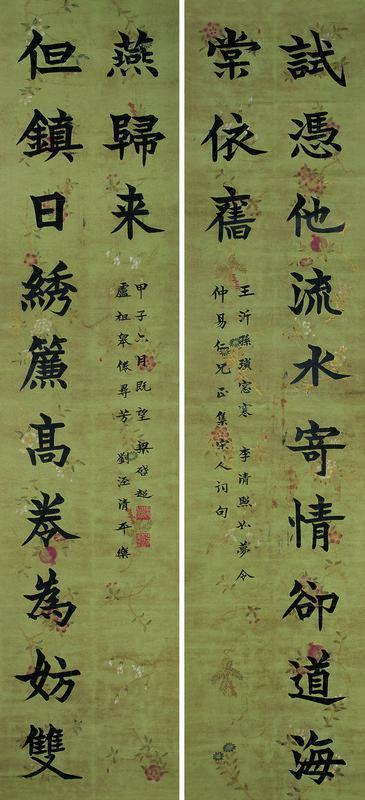 試憑他流水寄情卻道海
棠依舊
王沂孫瑣窻寒 李清照如夢令
仲易仁兄正集宋人词句
但鎮日綉簾高卷為妨雙
燕歸来
盧祖皋倦尋芳 劉涇清平樂
甲子六月既望 梁啓超